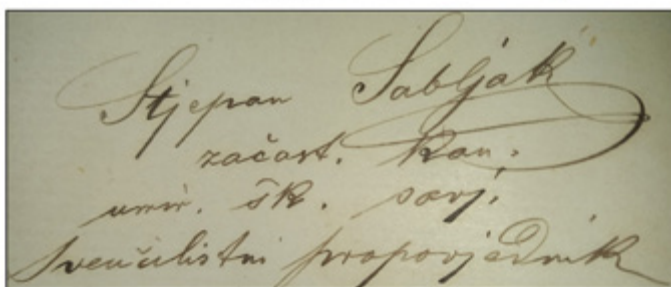 Stjepan Sabljak
začast. kan.
umir. šk. savj.
sveučilistni propovjednik